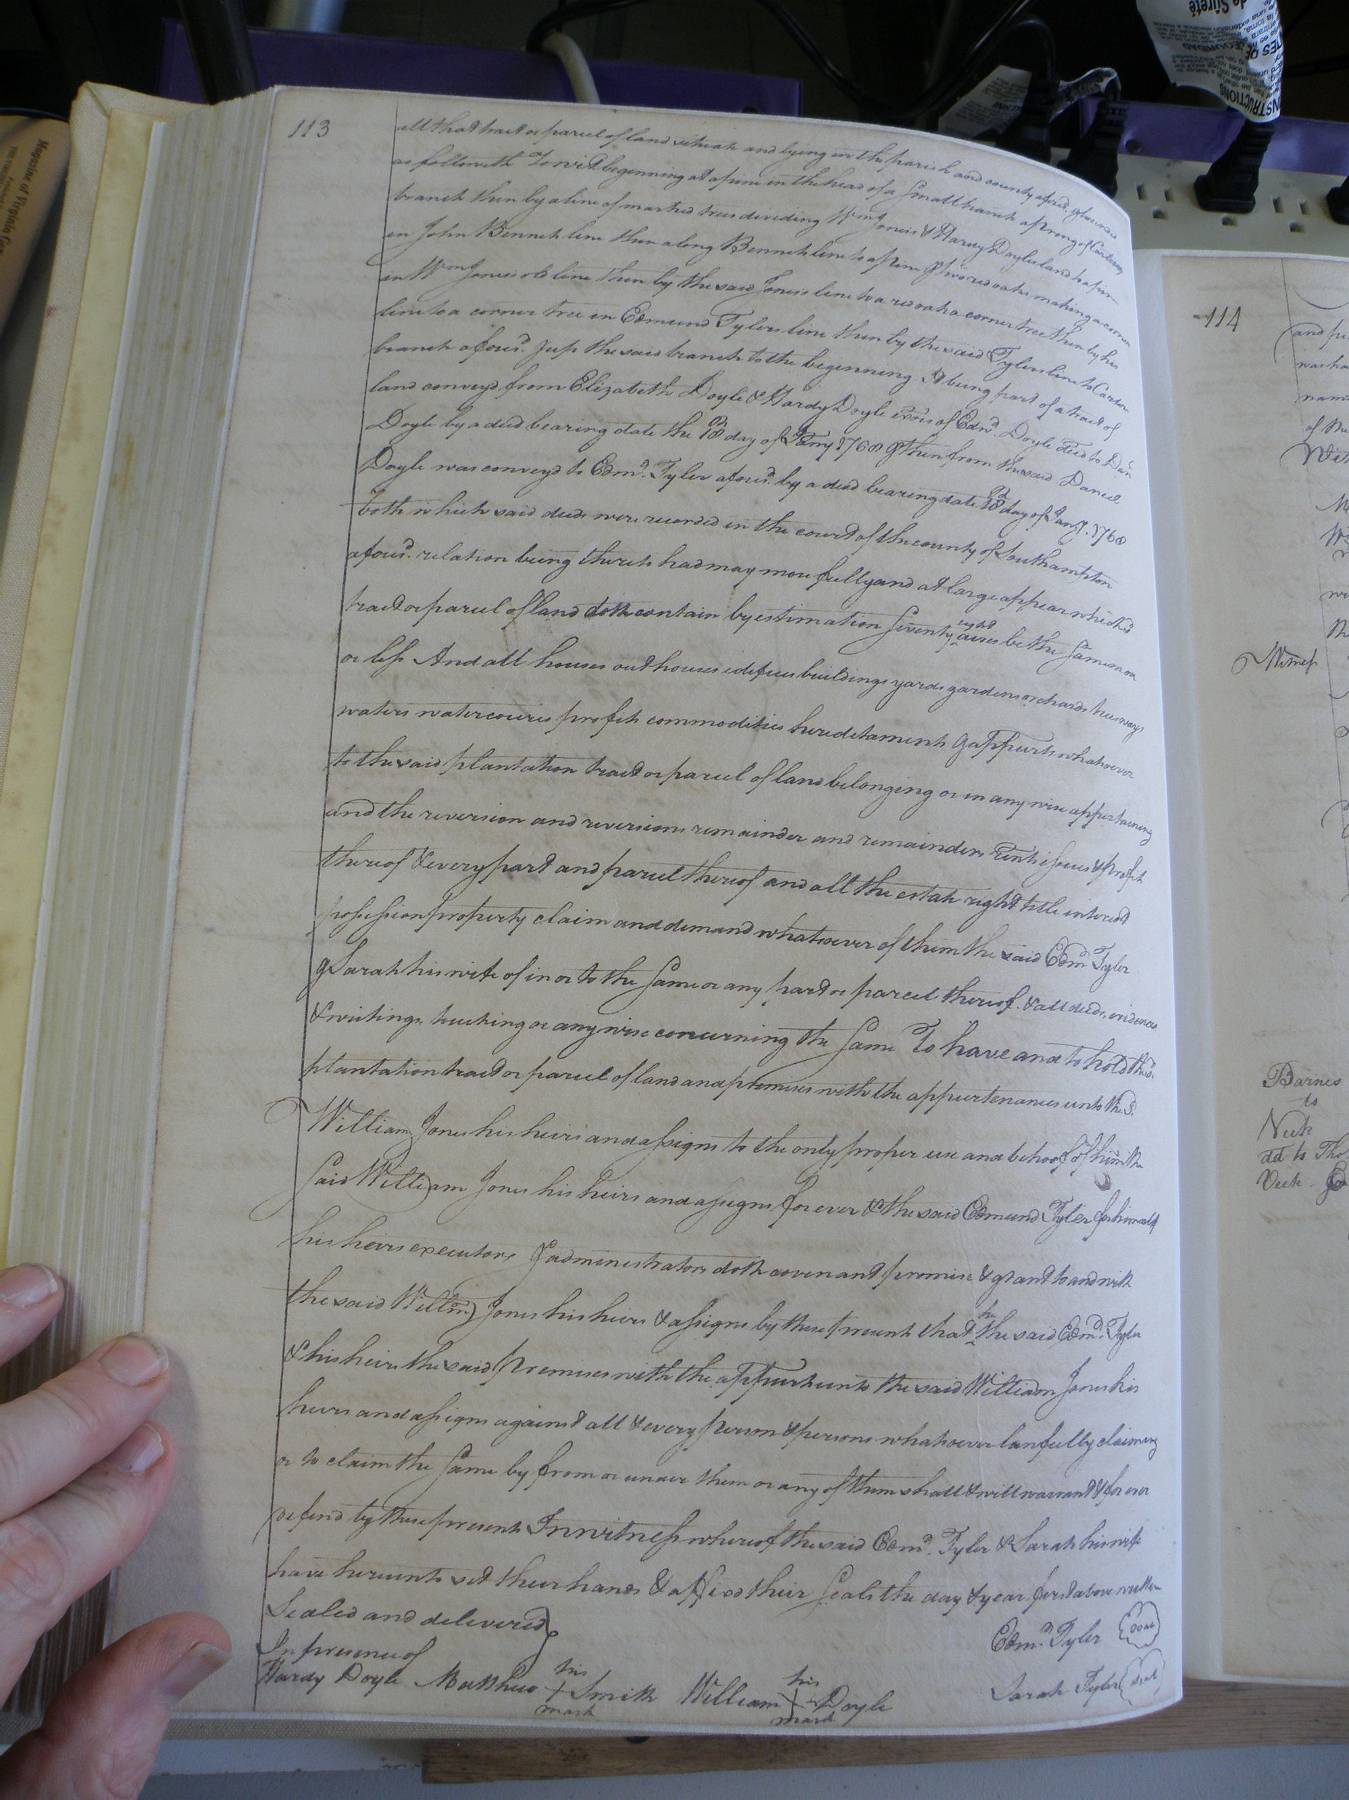 113
all that tract or parcel of land situate and lying in the parish and county afores.d
as followeth To wit beginning at a pine in the head of a Small branch a prong of
branch then by a line of marked trees dividing Wm Jones & Hardy Doyles land to a pine
in John Bennets line then along Bennets line to a pine & two red oaks making a corner
in Wm Jones's old line then by the said Jones's line to a red oak a corner tree then by his
line to a corner tree in Edmund Tylers line then by the said Tylers line to
branch afores.d up the said branch to the beginning It being part of a tract of
land convey.d from Elizabeth Doyle & Hardy Doyle of Edw.d Doyle to Dan
Doyle by a deed bearing date the day of 1768 & then from the said Daniel
Doyle was convey.d to Edm.d Tyler afores.d by a deed bearing date day of Jan.y 1768
both which said deeds were recorded in the court of the county of Southampton
afores.d relation being thereto had may more fully and at large appear which s.d
tract or parcel of land doth contain by estimation Seventy eight acres be the Same more
or less And all houses outhouses edifices buildings yards gardens orchards trees ways
waters watercourses profits commodities hereditaments & appurts whatsoever
to the said plantation tract or parcel of land belonging or in any wise appertaining
and the reversion and reversions remainder and remainders rents issues & profits
thereof & every part and parcel thereof and all the estate right title interest
possession property claim and demand whatsoever of them the said Edm.d Tyler
& Sarah his wife of in or to the Same or any part or parcel thereof & all deeds, evidences
& writings touching or any wise concerning the Same To have and to hold the s.d
plantation tract or parcel of land and premises with the appurtenances unto the s.d
William Jones his heirs and assigns to the only proper use and behoof of him the
Said William Jones his heirs and assigns forever & the said Edmund Tyler for himself
his heirs executors & administrators doth covenant promise & grant to and with
the said Willm Jones his heirs & assigns by these presents that he the said Edm.d Tyler
& his heirs the said Premises with the appurts unto the said William Jones his
heirs and assigns against all & every person & persons whatsoever lawfully claiming
or to claim the Same by from or under them or any of them shall & will warrant & for ever
defend by these presents In witness whereof the said Edm.d Tyler & Sarah his wife
have hereunto set their hands & affixed their Seals the day & year first above written
Sealed and delivered
In presence of
Edm.d Tyler Seal
Hardy Doyle Matthew his + mark Smith William his + mark Doyle
Sarah Tyler Seal
114
and
was
of the
Wit
Witness
Barnes
to
Vick
dd to Tho
Vick
Magazine of Virginia Gen
de Sûreté
INSTRUCTIONS